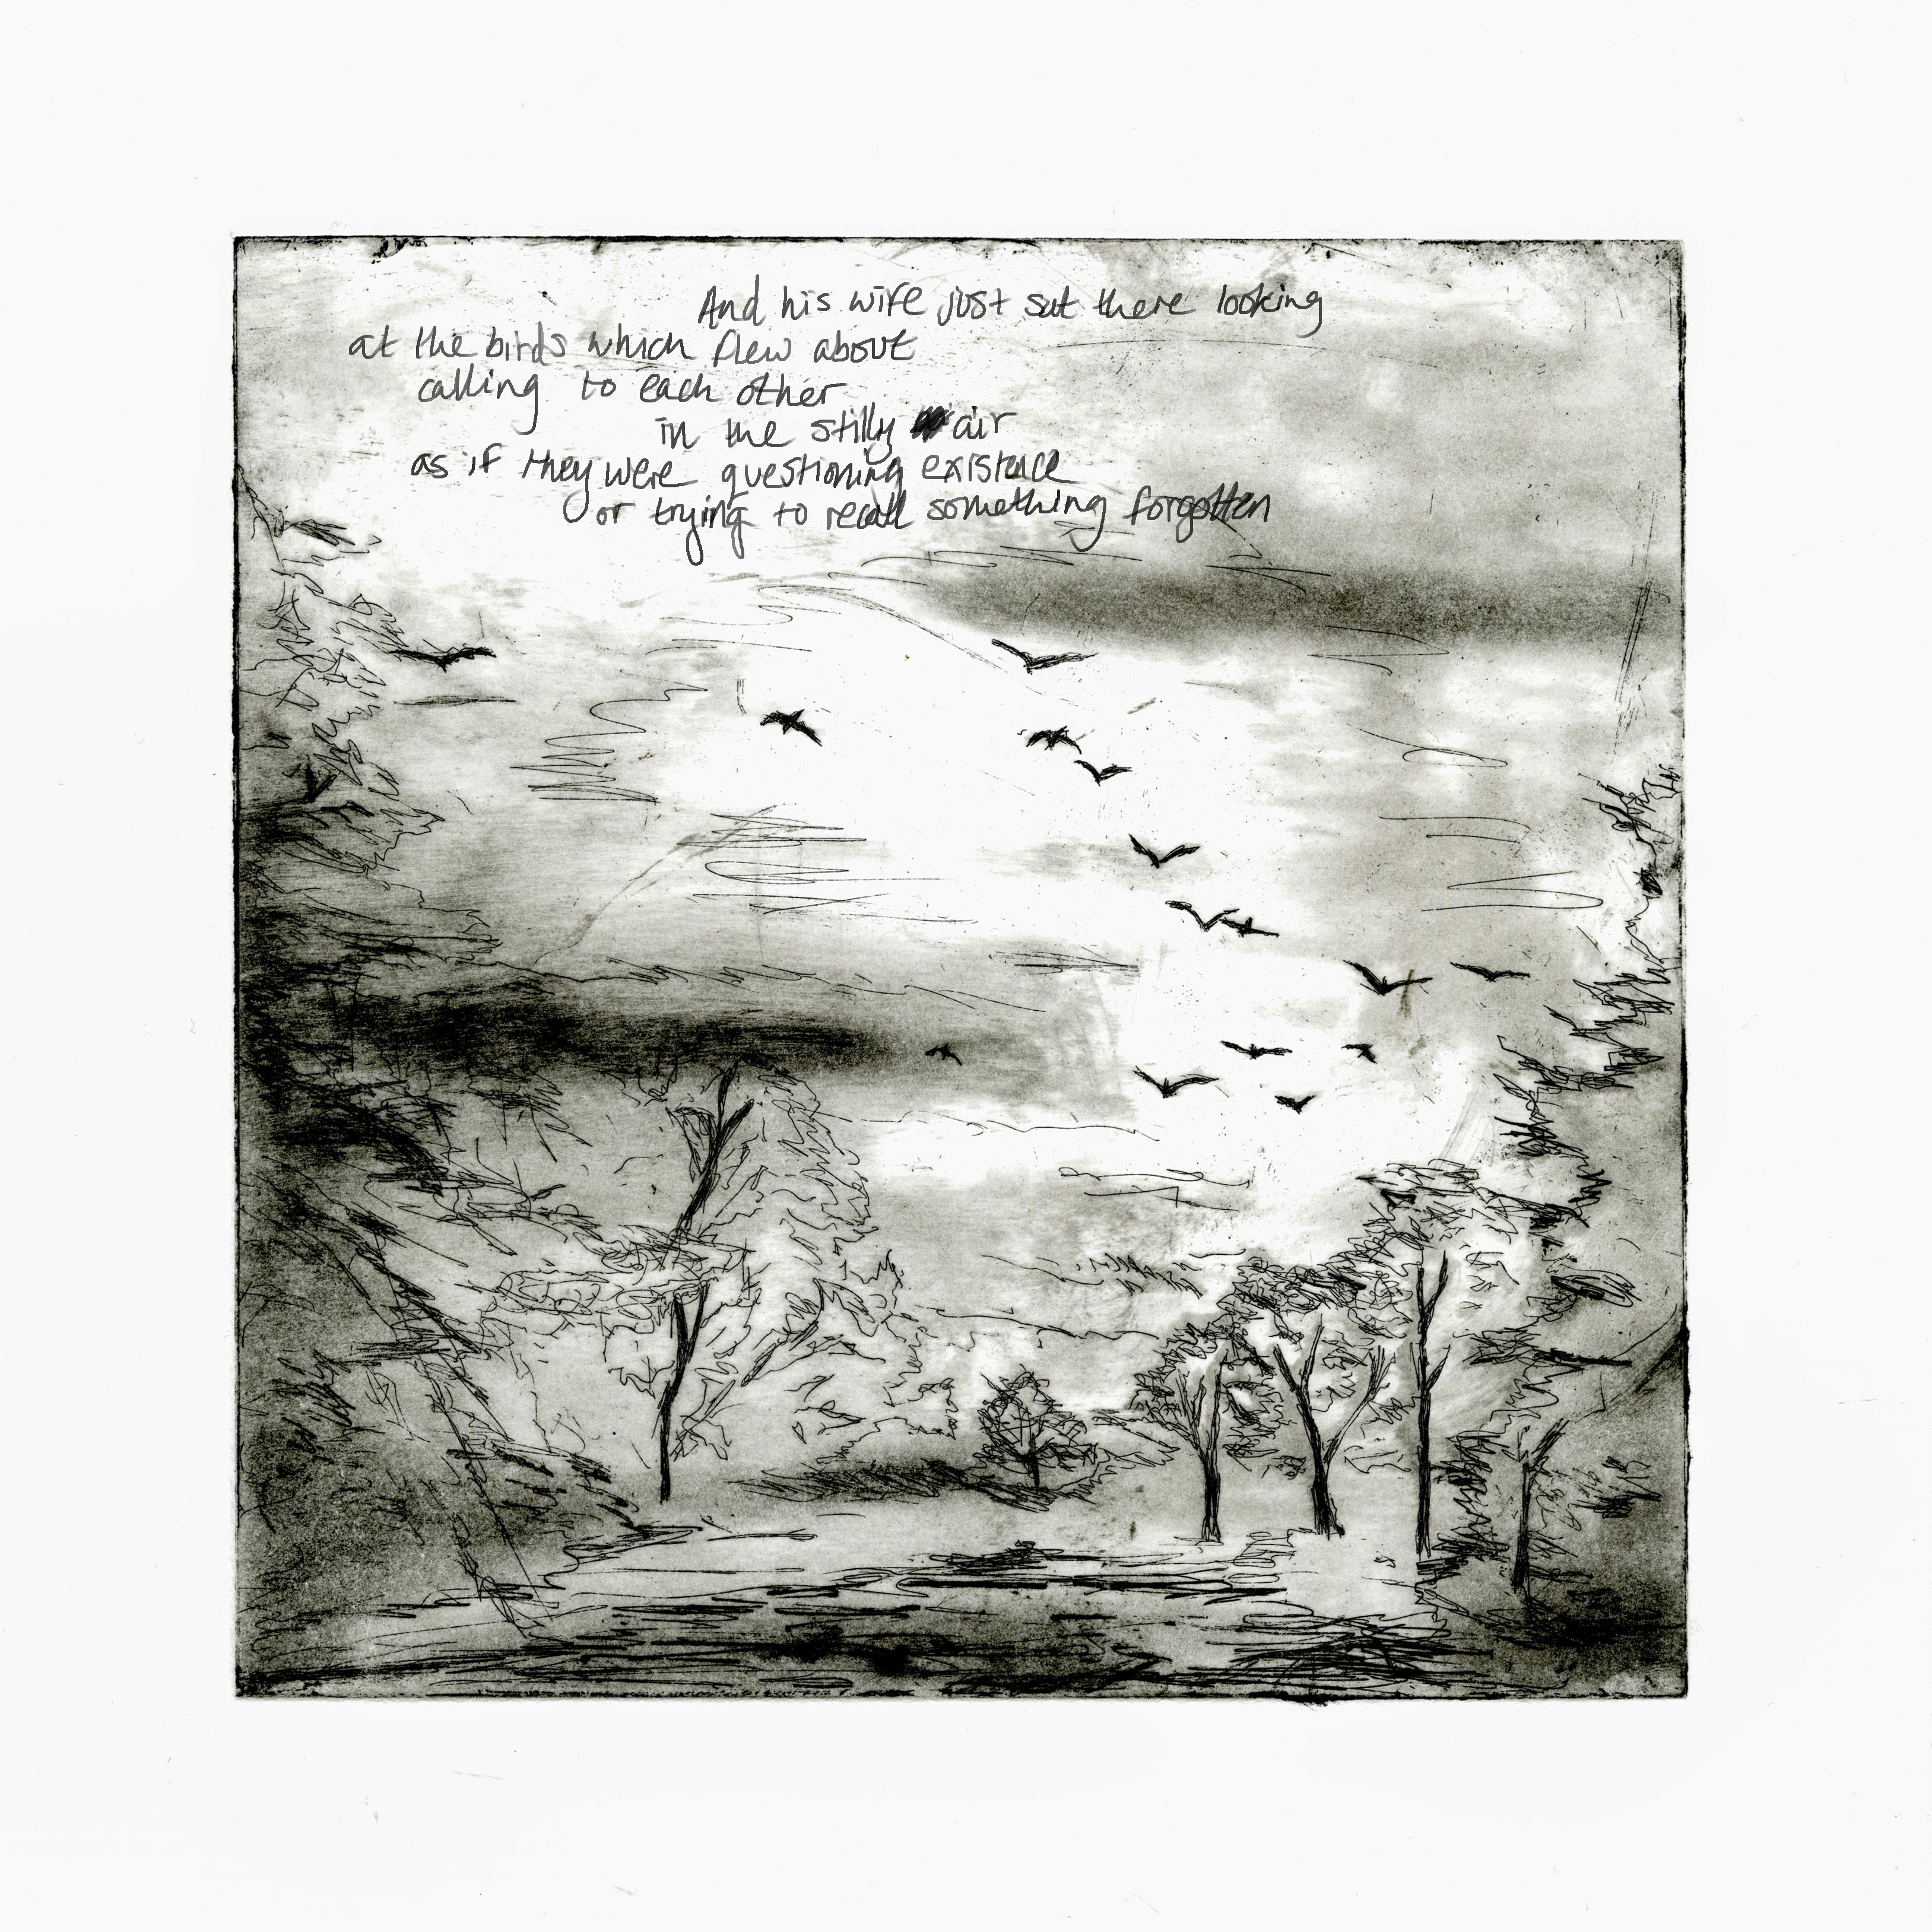 And his wife just sat there looking
at the birds which flew about
calling to each other
in the stilly air
as if they were questioning existence
or trying to recall something forgotten